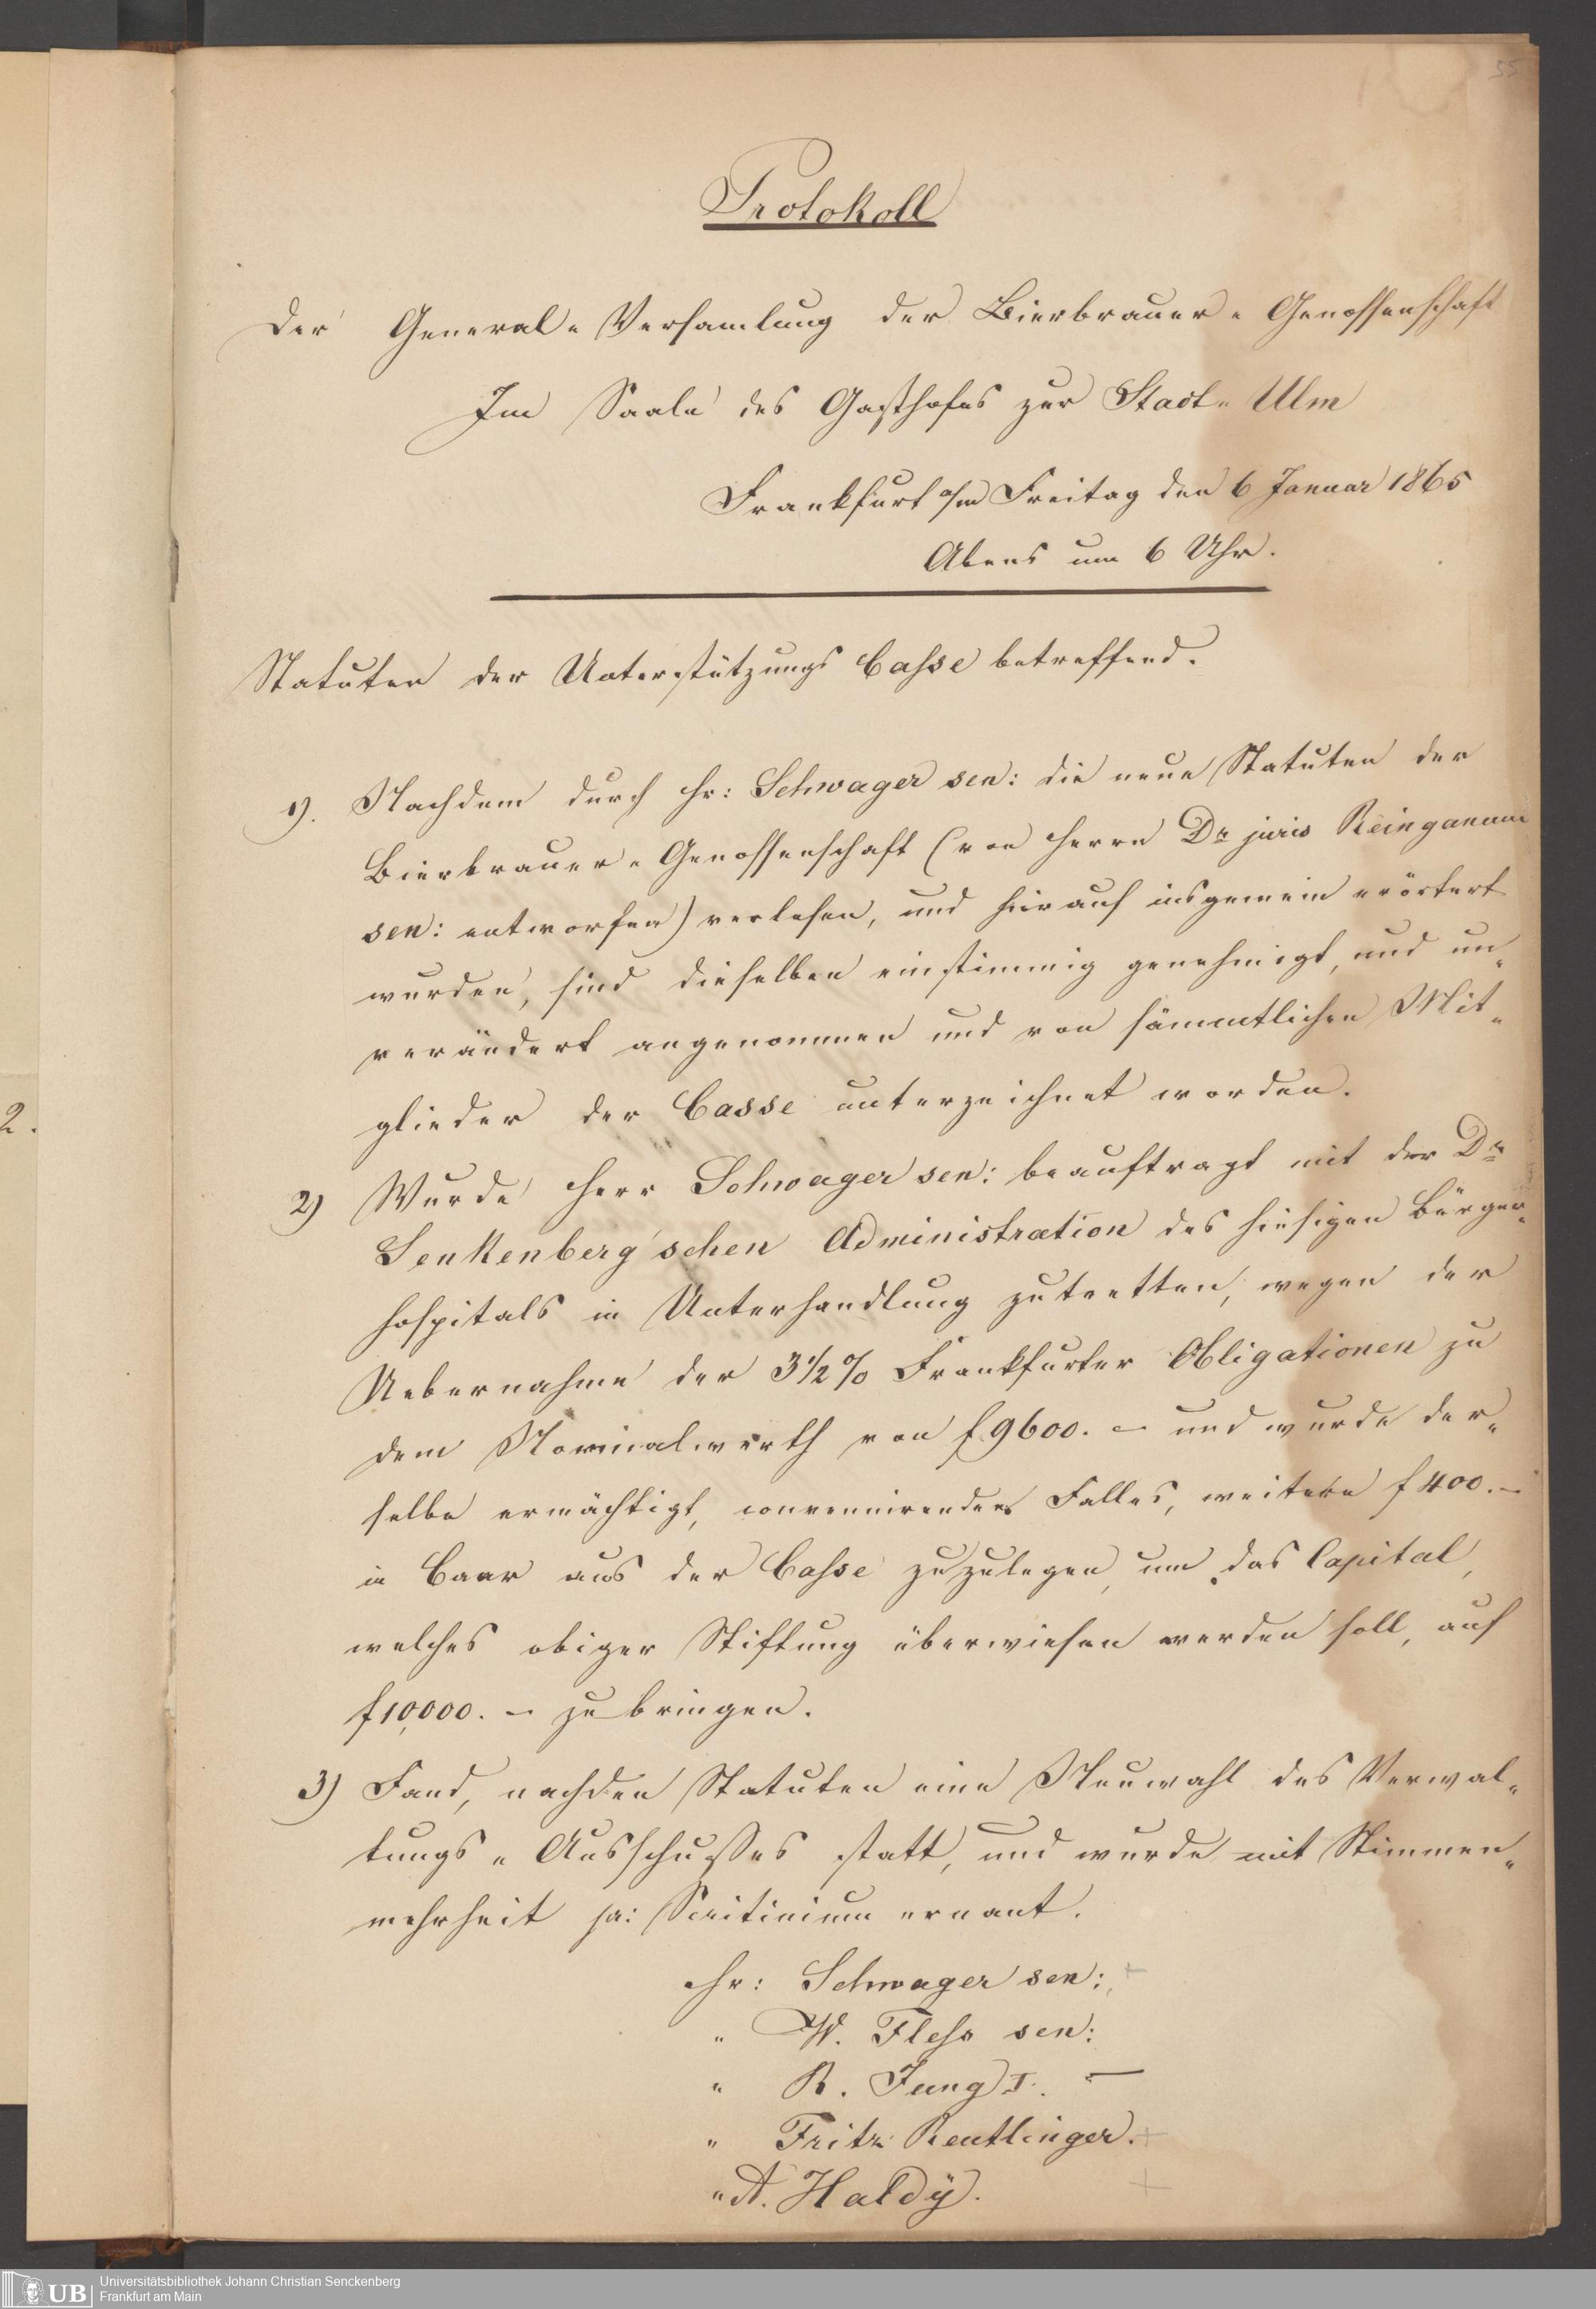 35
Protokoll
Der General-Versamlung der Bierbrauer-Genossenschaft
Im Saale des Gasthofes zur Stadt-Ulm
Frankfurt a/m Freitag den 6 Januar 1865
Abens um 6 Uhr.
Statuten der Unterstützungs Casse betreffend.
1). Nachdem durch Hr: Schwager sen: die neue Statuten der
Bierbrauer-Genossenschaft (von Herrn Dr juris Reinganum
sen: entworfen) verlesen, und hierauf insgemein erörtert
wurden, sind dieselben einstimmig genehmigt, und un-
verändert angenommen und von sämmtlichen Mit-
glieder der Casse unterzeichnet worden.
2.
2) Wurde Herr Schwager sen: beauftragt mit der Dr
Senkenberg'schen Administration des hiesigen Bürger-
hospitals in Unterhandlung zutretten, wegen der
Uebernahme der 3½% Frankfurter Obligationen zu
dem Nominalwerth von f 9600. – und wurde der-
selbe ermächtigt, convennirenden Falles, weitere f 400. –
in Baar aus der Casse zuzulegen, um das Capital,
welches obiger Stiftung überwiesen werden soll, auf
f 10,000. – zu bringen.
3) Fand, nach den Statuten eine Neuwahl des Verwal-
tungs-Ausschußes statt, und wurde mit Stimmen-
mehrheit pr: Scritinium ernant.
Hr: Schwager sen:
" W. Flesch sen:
" R. Jung I. –
" Fritz Reutlinger.
" A. Haldÿ.
UB
Universitätsbibliothek Johann Christian Senckenberg
Frankfurt am Main